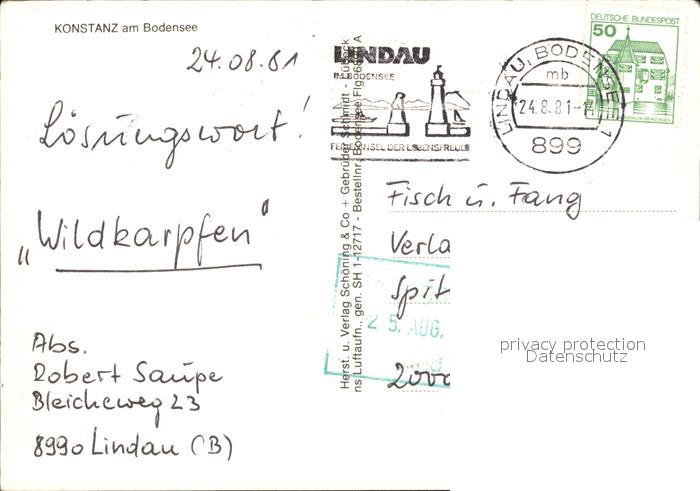 KONSTANZ am Bodensee
24.08.81
Lösungswort!
„Wildkarpfen"
Abs.
Robert Saupe
Bleicheweg 23
8990 Lindau (B)
Herst. u. Verlag Schöning & Co + Gebrüder Schmidt - Lübeck
ns Luftaufn., gen. SH 1-12717 - Bestellnr. Bodensee Flg.
LINDAU
IM BODENSEE
FERIENINSEL DER LEBENSFREUDE
LINDAU, BODENSEE 1
mb
24.8.81-17
899
DEUTSCHE BUNDESPOST
50
Fisch u. Fang
Verla
Spit
2000
25. AUG.
privacy protection
Datenschutz